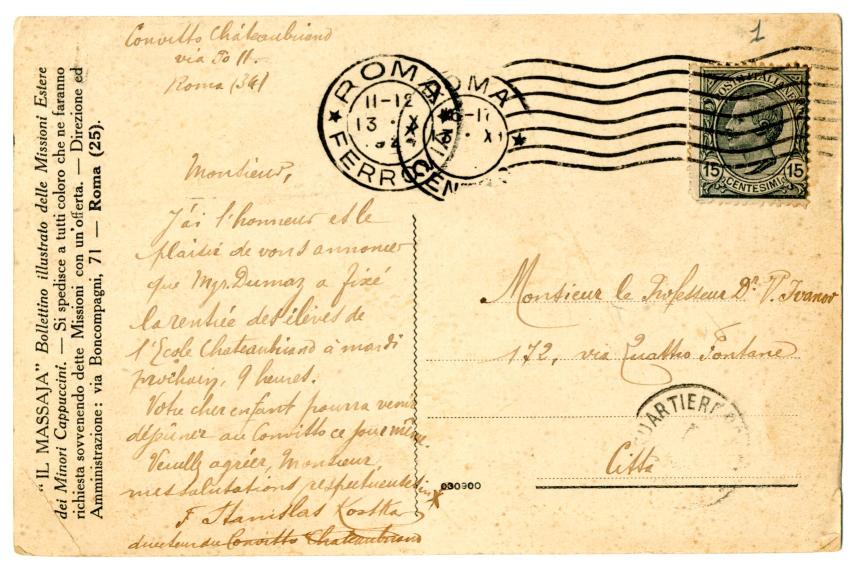 "IL MASSAJA" Bollettino illustrato delle Missioni Estere
dei Minori Cappuccini. — Si spedisce a tutti coloro che ne faranno
richiesta sovvenendo dette Missioni con un'offerta. — Direzione ed
Amministrazione: via Boncompagni, 71 — Roma (25).
Convitto Châteaubriand
via Po 11.
Roma (34)
Monsieur,
J'ai l'honneur et le
plaisir de vous annoncer
que Mgr. Dumaz a fixé
la rentrée des élèves de
l'Ecole Chateaubriand à mardi
prochain, 9 heures.
Votre cher enfant pourra venir
déjeûner au Convitto ce jour même.
Veuillez agréer, Monsieur,
mes salutations respectueuses in X
F. Stanislas Kostka
directeur du Convitto Chateaubriand
ROMA
FERRO
11-12
13 · X
ROMA
CENT
1
POSTE ITALIANE
15 15
CENTESIMI
Monsieur le Professeur Dr. V. Ivanov
172, via Quattro Fontane
Città
QUARTIERE
030900